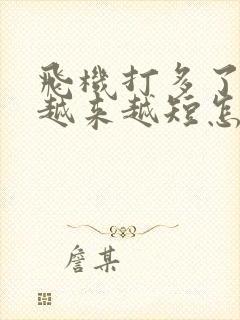 飛機打多了
越来越短怎
詹某